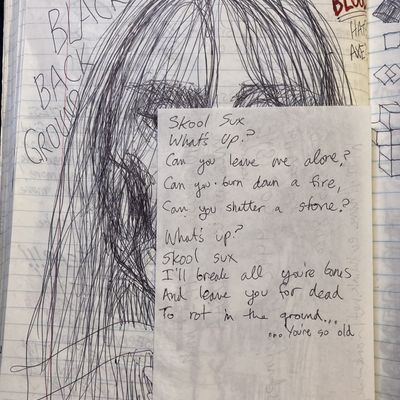 BLACK
BACK
GROUND
BLOO
HA
AVE
Skool Sux
What's Up?
Can you leave me alone?
Can you burn down a fire,
Can you shatter a stone?
What's up?
Skool sux
I'll break all you're bones
And leave you for dead
To rot in the ground...
...You're so old